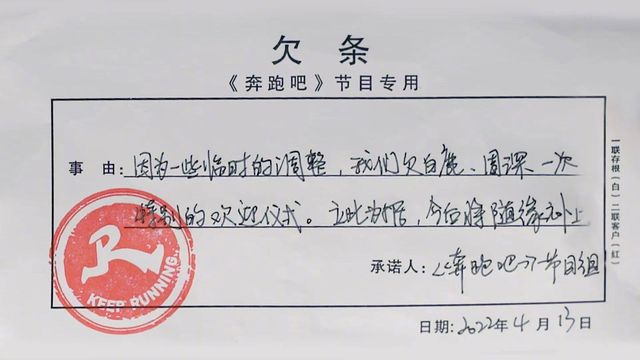 欠条
《奔跑吧》节目专用
事由：因为一些临时的调整，我们欠白鹿、周深一次
特别的欢迎仪式。立此为据，今后将随缘补上
承诺人：《奔跑吧》节目组
日期：2022年4月13日
一联存根（白）二联客户（红）
R
KEEP RUNNING